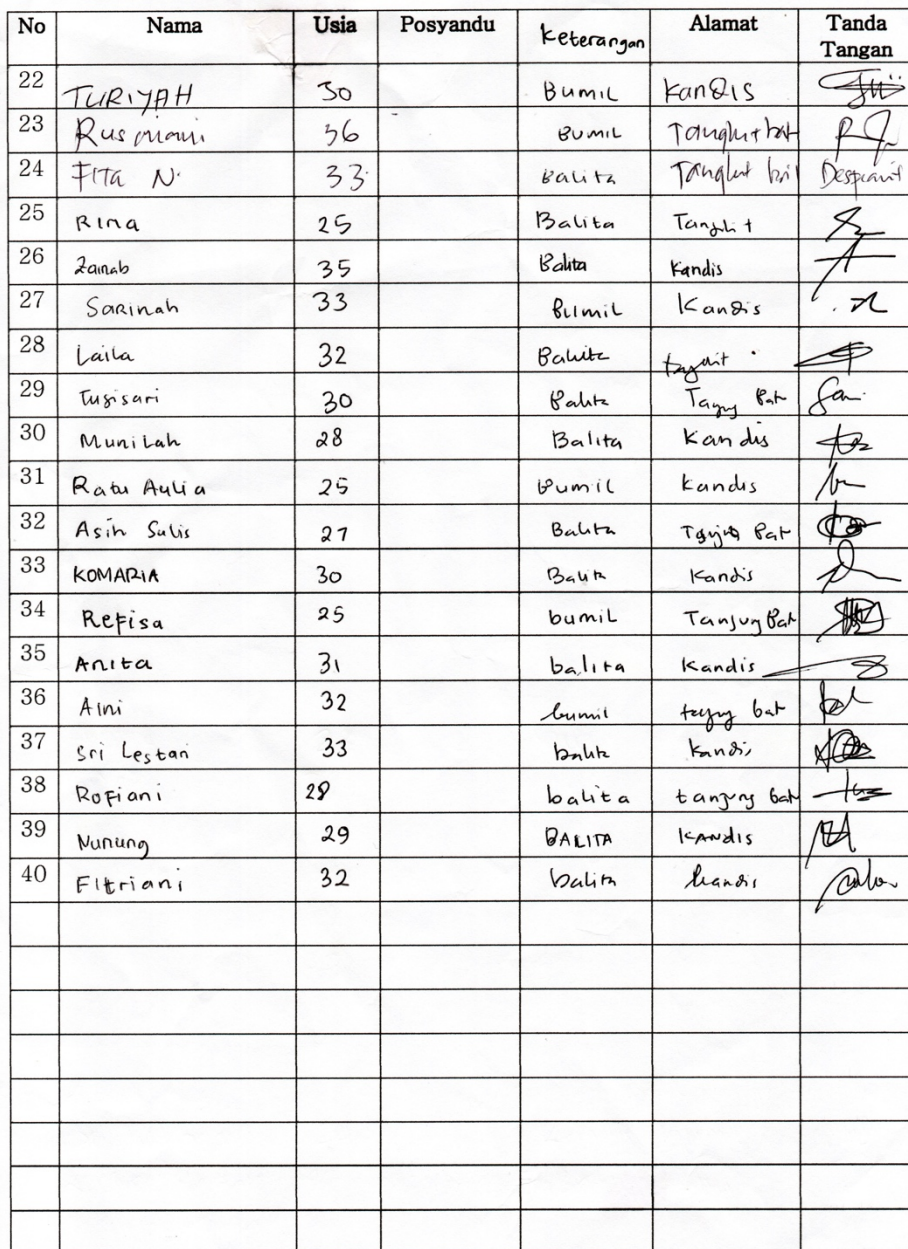 No Nama Usia Posyandu Keterangan Alamat Tanda Tangan
22 TURIYAH 30 Bumil Kandis
23 Rusmiami 36 Bumil
24 Fita N. 33 Balita
25 Rina 25 Balita
26 Zainab 35 Balita Kandis
27 Sarinah 33 Bumil Kandis
28 Laila 32 Balita
29 Tugisari 30 Balita
30 Munilah 28 Balita Kandis
31 Ratu Aulia 25 Bumil Kandis
32 Asih Sulis 27 Balita Bat
33 KOMARIA 30 Balita Kandis
34 Refisa 25 bumil Tanjung Bat
35 Anita 31 balita Kandis
36 Aini 32 bumil bat
37 Sri Lestari 33 balita Kandis
38 Rofiani 28 balita tanjung bat
39 Nunung 29 BALITA KANDIS
40 Fitriani 32 balita kandis